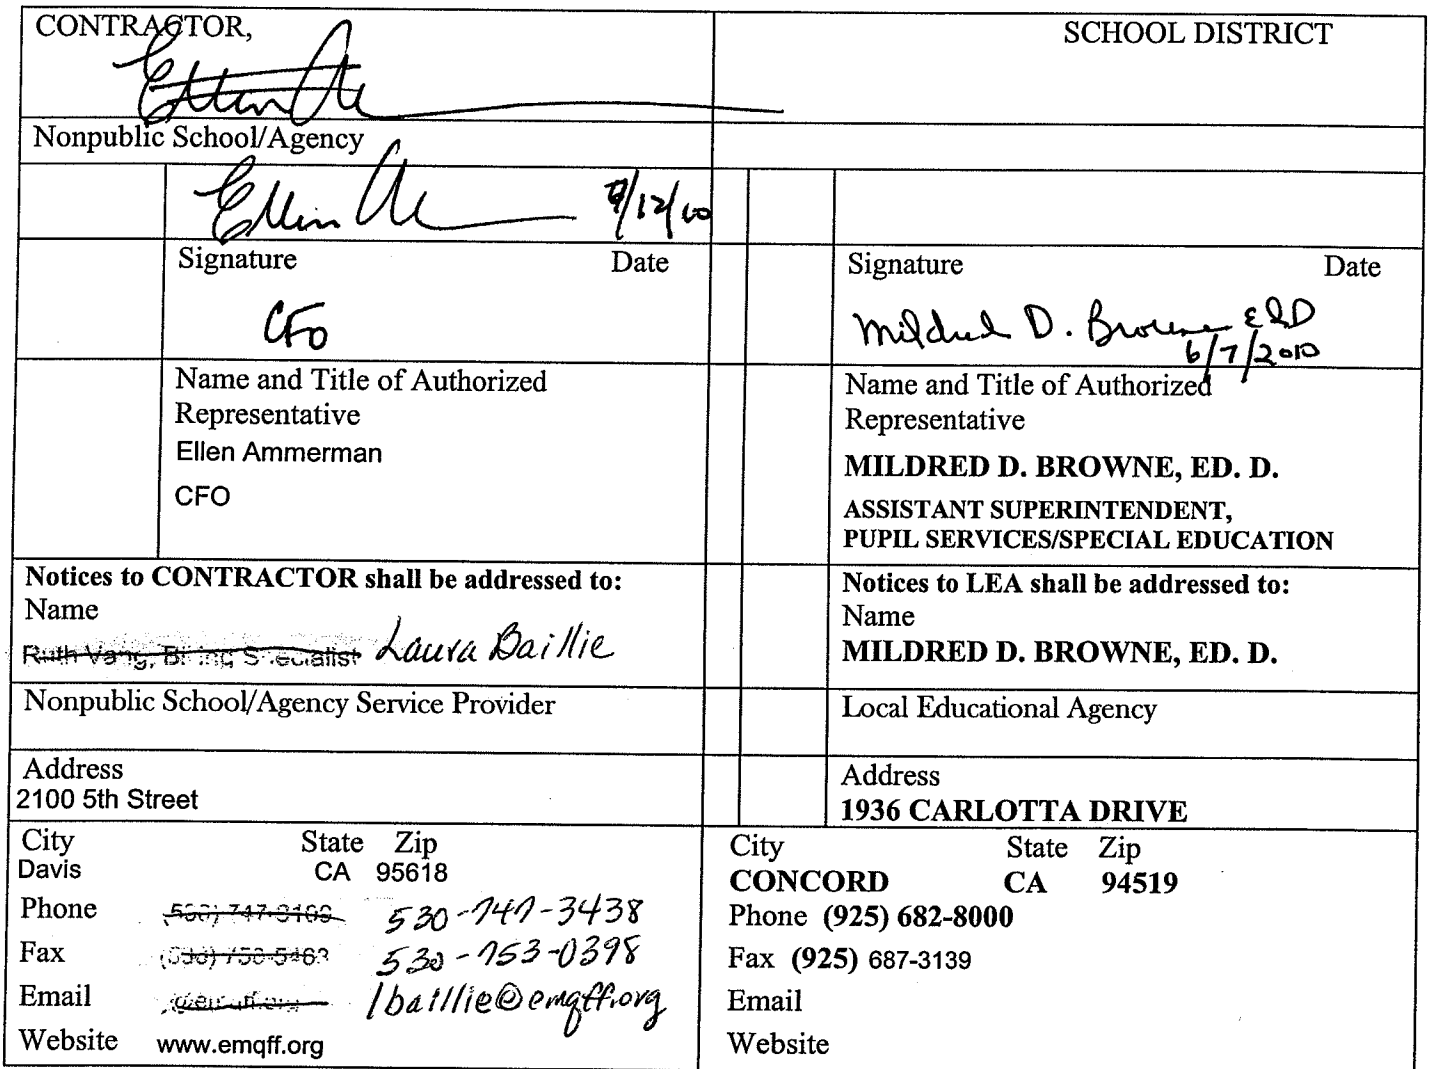 CONTRACTOR,
Nonpublic School/Agency
Signature Date
CFO
Name and Title of Authorized
Representative
Ellen Ammerman
CFO
Notices to CONTRACTOR shall be addressed to:
Name
Ruth Vang, Billing Specialist Laura Baillie
Nonpublic School/Agency Service Provider
Address
2100 5th Street
City State Zip
Davis CA 95618
Phone 530-747-3438
Fax 530-753-0398
Email lbaillie@emqff.org
Website www.emqff.org
SCHOOL DISTRICT
Signature Date
Mildred D. Browne EdD
6/7/2010
Name and Title of Authorized
Representative
MILDRED D. BROWNE, ED. D.
ASSISTANT SUPERINTENDENT,
PUPIL SERVICES/SPECIAL EDUCATION
Notices to LEA shall be addressed to:
Name
MILDRED D. BROWNE, ED. D.
Local Educational Agency
Address
1936 CARLOTTA DRIVE
City State Zip
CONCORD CA 94519
Phone (925) 682-8000
Fax (925) 687-3139
Email
Website